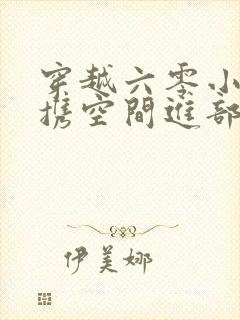 穿越六零小
携空間進部
伊美娜